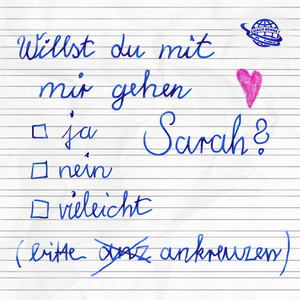 Willst du mit
mir gehen
ja Sarah?
nein
vieleicht
(bitte anz ankreuzen)